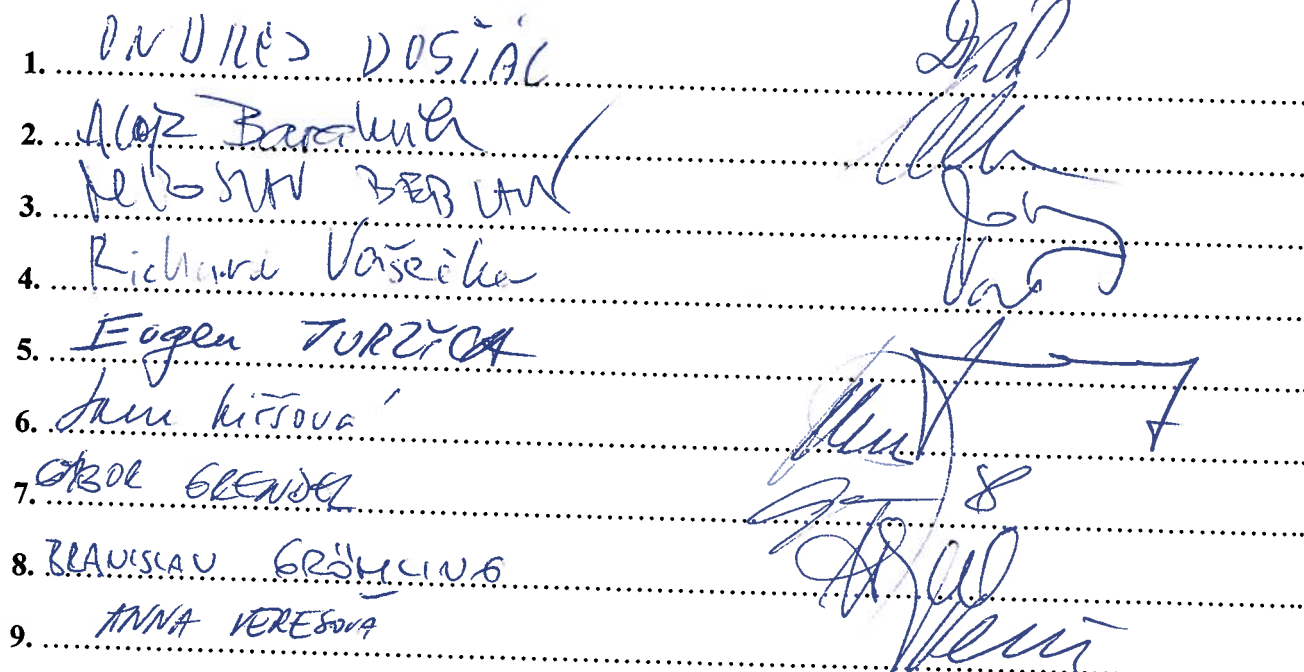 1. ONDREJ DOSTÁL
2. Alojz Baránik
3. MIROSLAV BEBLAVÝ
4. Richard Vašečka
5. Eugen JURZYCA
6. Jana Kiššová
7. GÁBOR GRENDEL
8. BRANISLAV GRÖHLING
9. ANNA VEREŠOVÁ